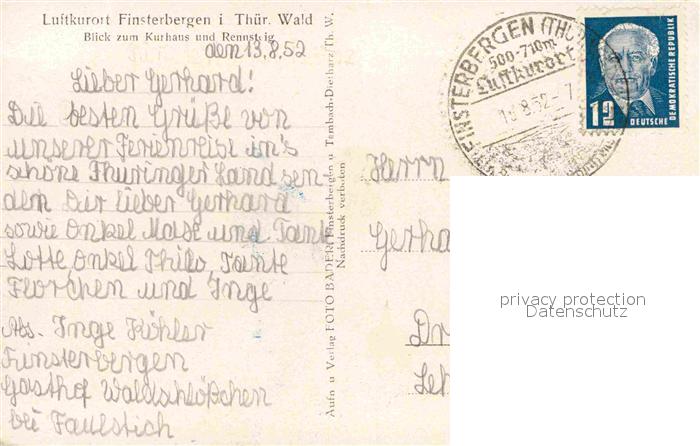 Luftkurort Finsterbergen i. Thür. Wald
Blick zum Kurhaus und Rennsteig
den 13.8.52
Lieber Gerhard!
Die besten Grüße von
unserer Ferienreise in's
schöne Thüringer Land sen-
den Dir lieber Gerhard
sowie Onkel und Tante
Lotte Onkel Thilo, Tante
Florchen und Inge
Abs. Inge Köhler
Finsterbergen
Gasthof Waldschlößchen
bei Faulstich
Aufn u Verlag FOTO BADER, Finsterbergen u Tambach-Dietharz/Th. W.
Nachdruck verboten
FINSTERBERGEN (THÜR
500-710m
Luftkurort
8.52-7
12
DEUTSCHE
DEMOKRATISCHE REPUBLIK
Herrn
Gerha
Dr
Leh
privacy protection
Datenschutz